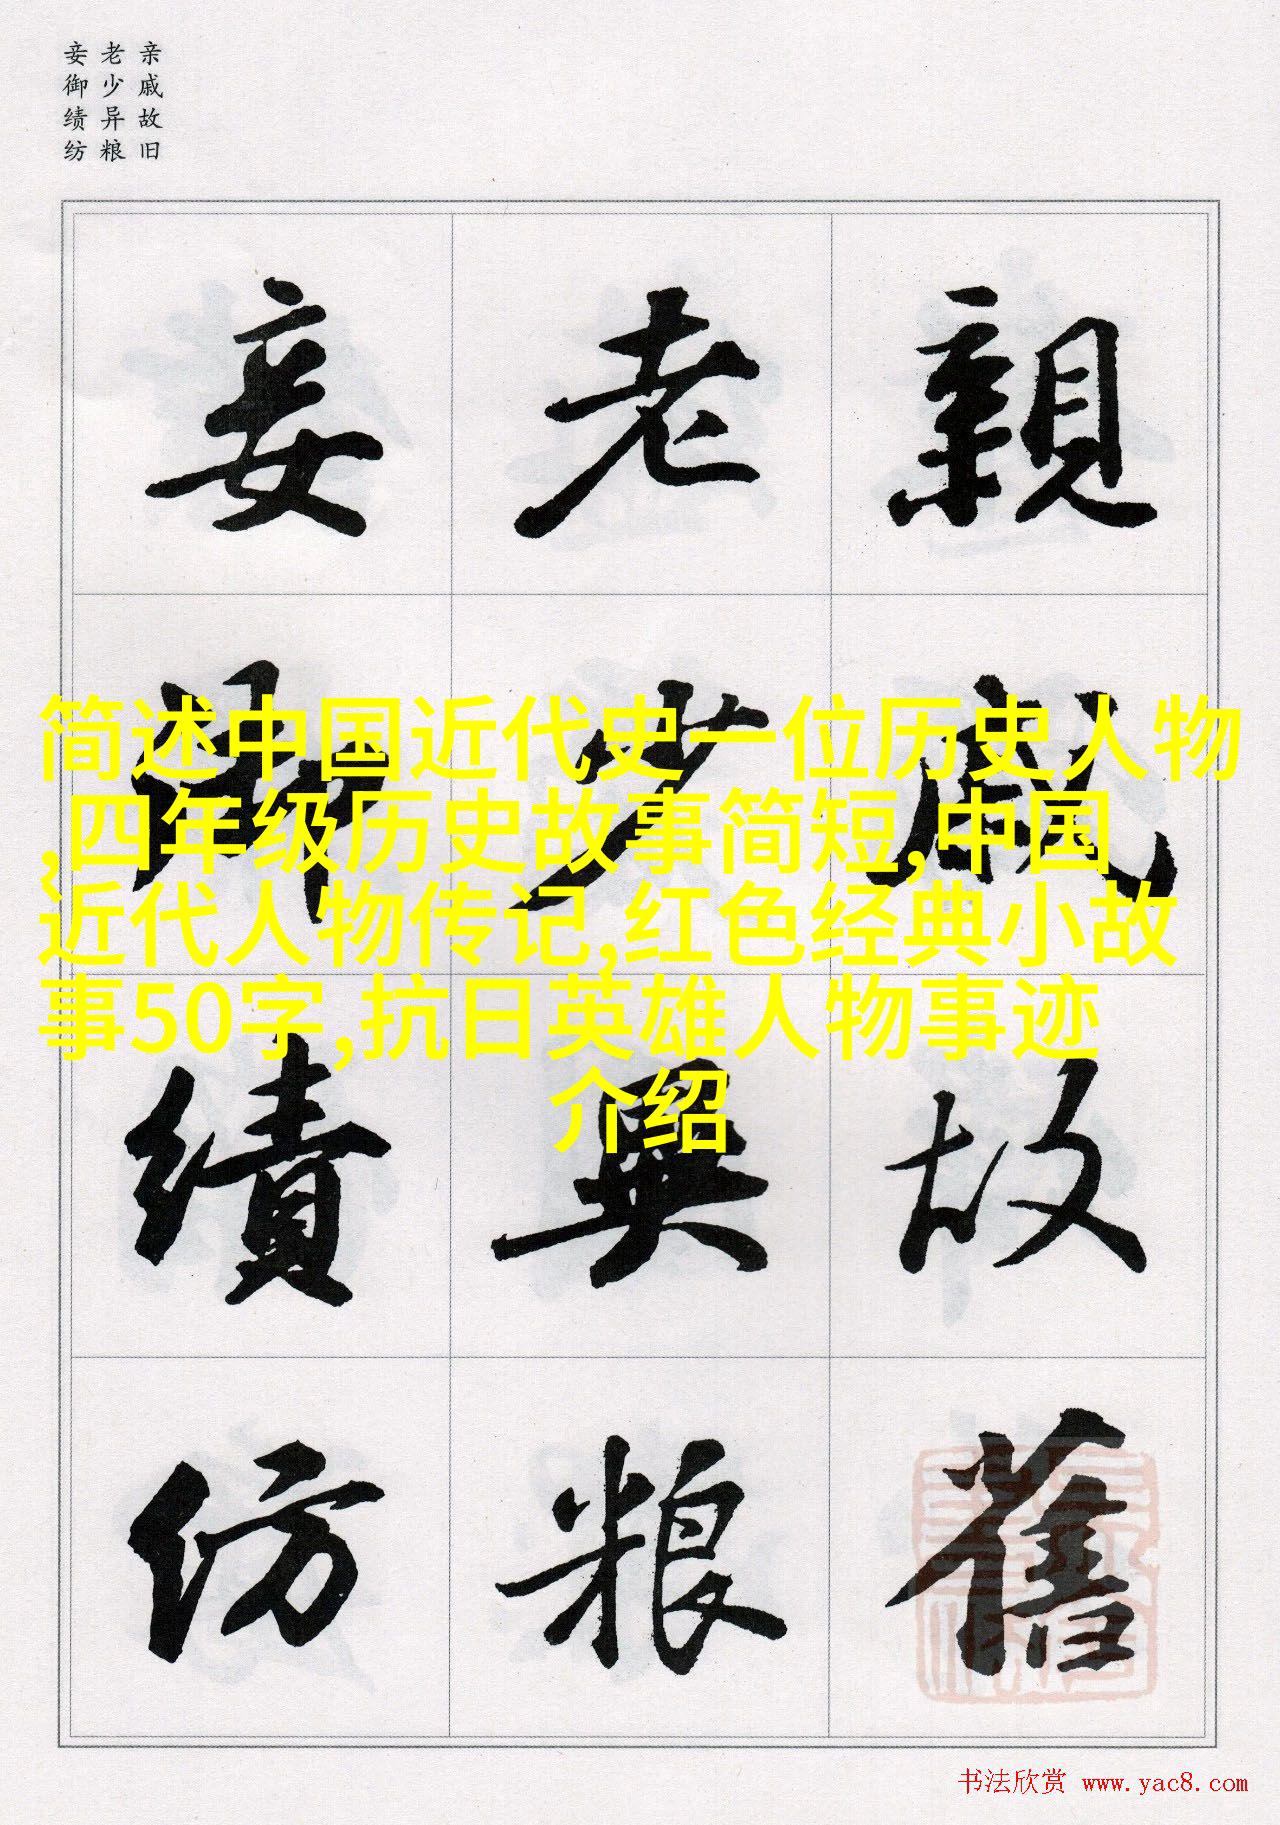 亲戚故旧
老少异粮
妾御绩纺
親戚故舊
老少異粮
妾御績紡
简述中国近代史一位历史人物
,四年级历史故事简短,中国
近代人物传记,红色经典小故
事50字,抗日英雄人物事迹
介绍
书法欣赏 www.yac8.com